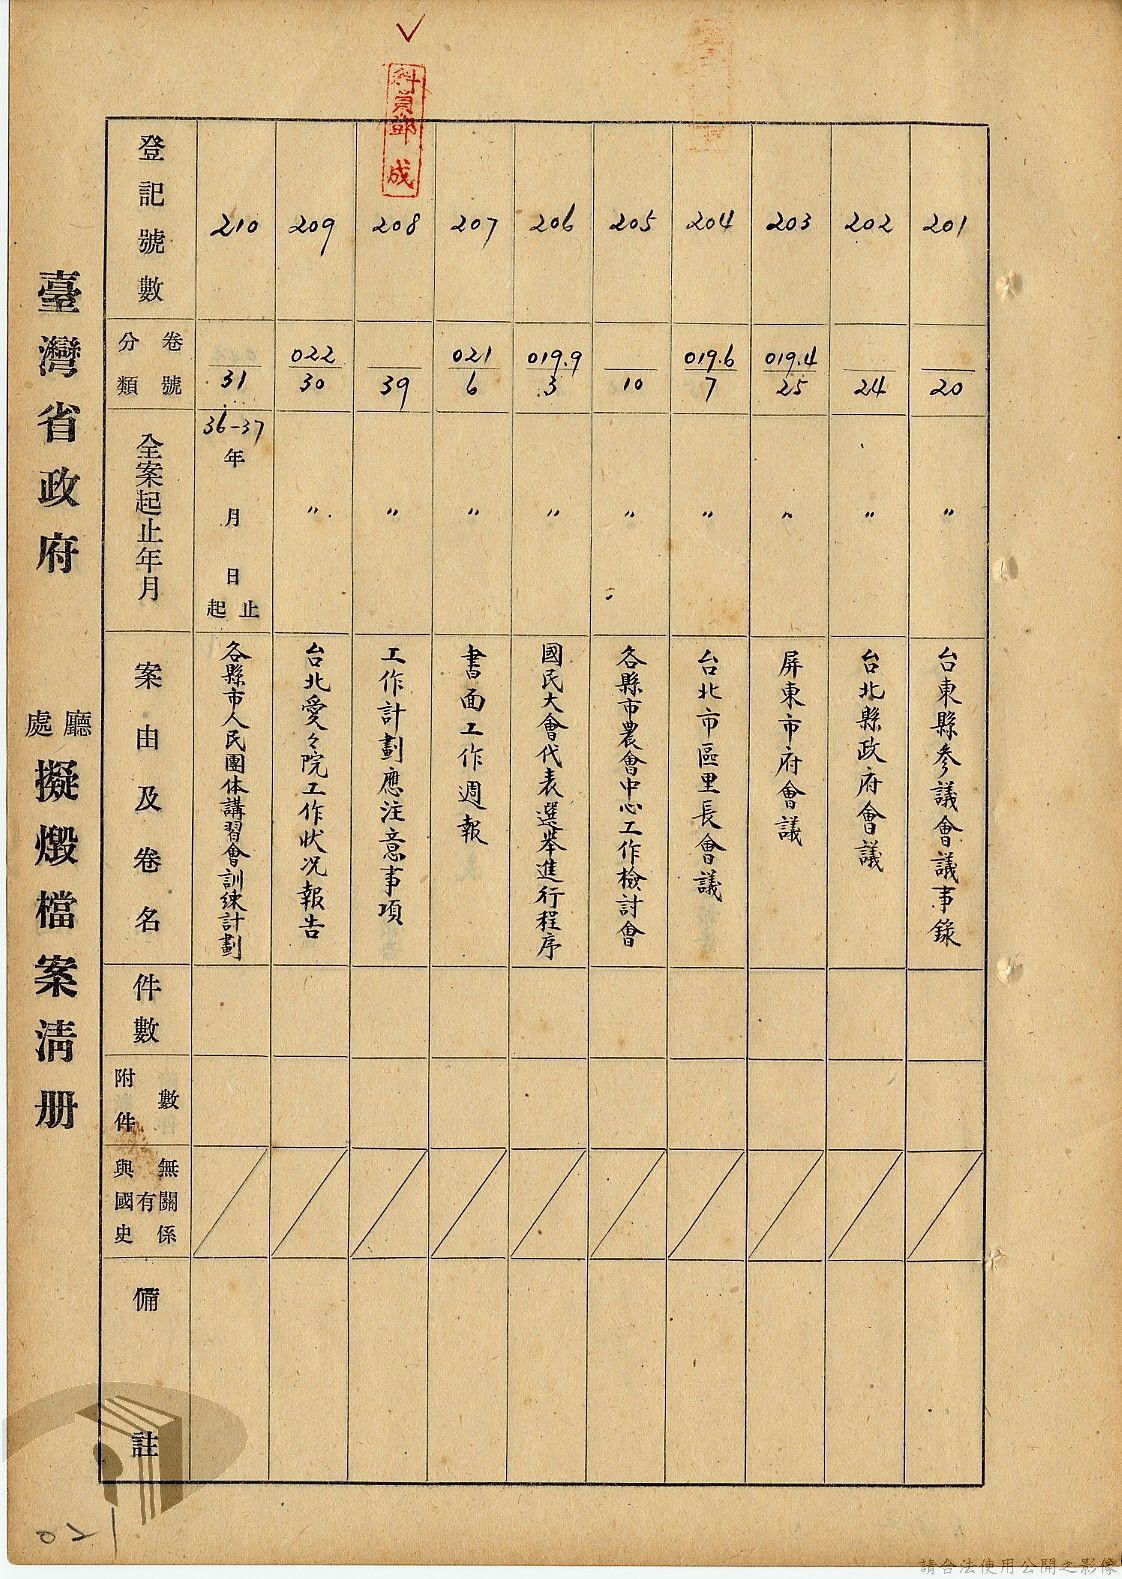 臺灣省政府 廳處 擬燬檔案清册
登記號數
分類 卷號
全案起止年月
案由及卷名
件數
附件 數
與國史 有無關係
備註
201 20 〃 台東縣參議會議事錄
202 24 〃 台北縣政府會議
203 019.4 25 〃 屏東市府會議
204 019.6 7 〃 台北市區里長會議
205 10 〃 各縣市農會中心工作檢討會
206 019.9 3 〃 國民大會代表選舉進行程序
207 021 6 〃 書面工作週報
208 39 〃 工作計劃應注意事項
209 022 30 〃 台北愛々院工作狀况報告
210 31 36-37 年 月 日 起止 各縣市人民團体講習會訓練計劃
科員鄧成
021
請合法使用公開之影像